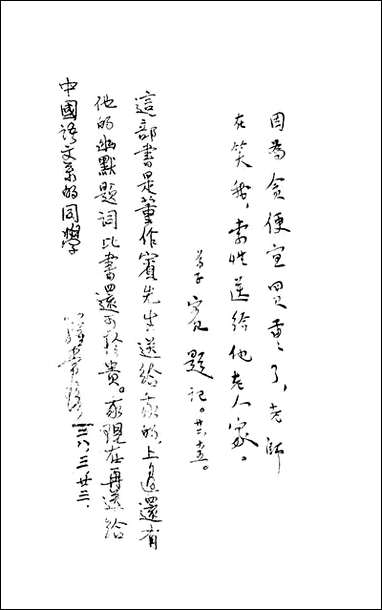 因為貪便宜買重了，老師
在笑我，索性送给他老人家。
題記。廿六，十五。
這部書是董作賓先生送給我的，上邊還有
他的幽默題詞比書還可珍貴。我現在再送給
中國語文系的同學
三八，三，廿三，